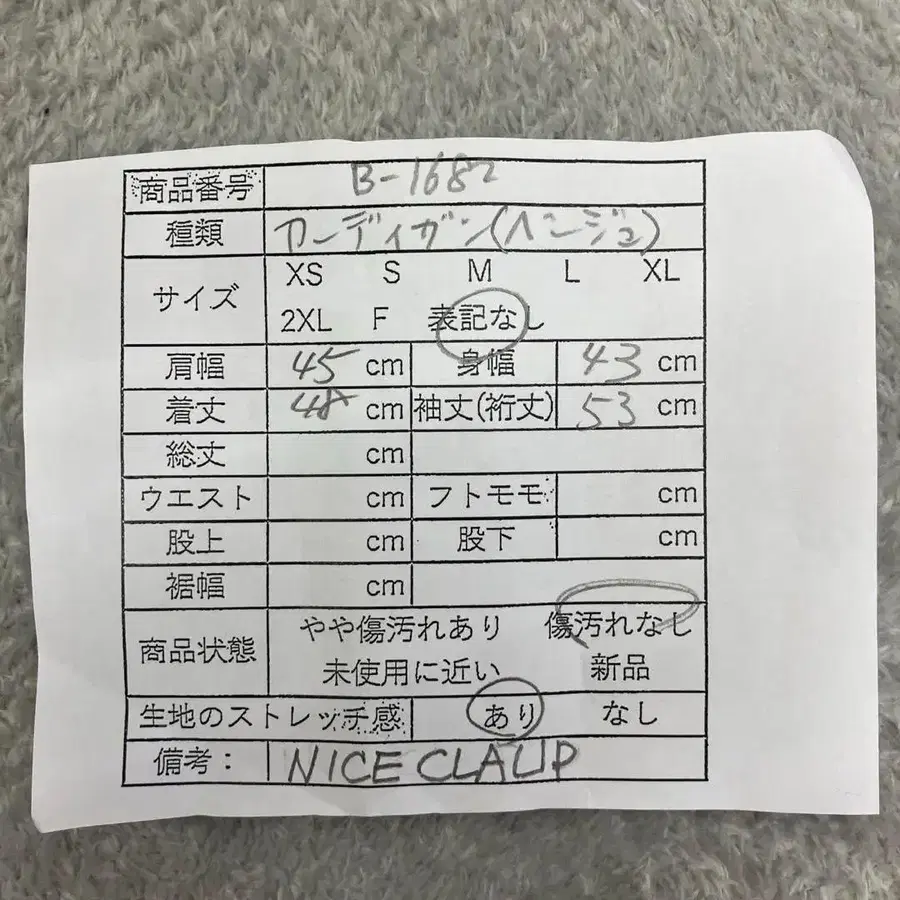 商品番号 B-1682
種類 カーディガン(ベージュ)
サイズ XS S M L XL
2XL F 表記なし
肩幅 45 cm 身幅 43 cm
着丈 48 cm 袖丈(裄丈) 53 cm
総丈 cm
ウエスト cm フトモモ cm
股上 cm 股下 cm
裾幅 cm
商品状態 やや傷汚れあり 傷汚れなし
未使用に近い 新品
生地のストレッチ感 あり なし
備考: NICE CLAUP